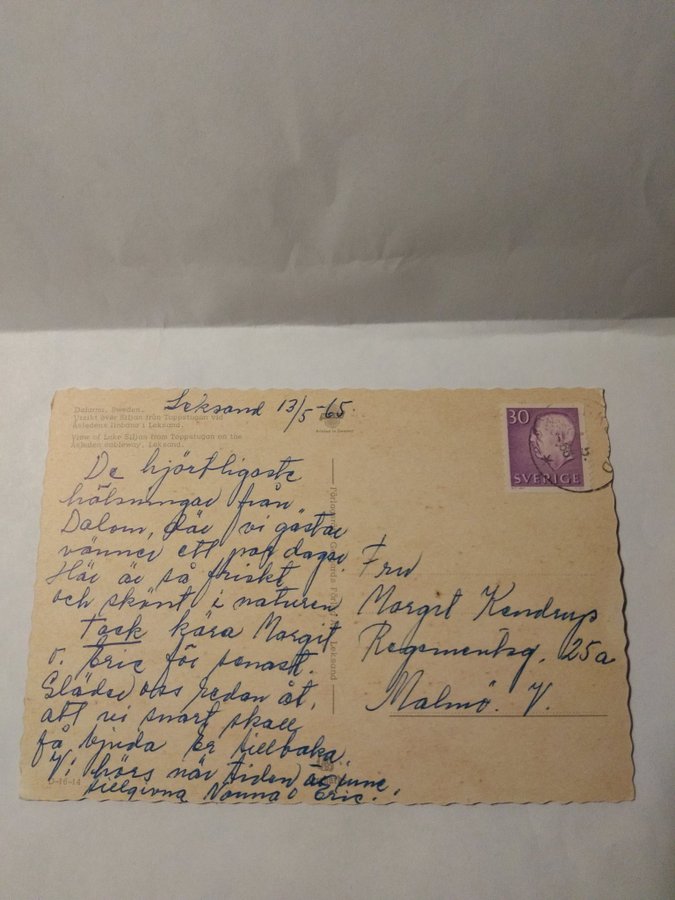 Leksand 13/5-65.
Dalarna, Sweden.
Utsikt över Siljan från Toppstugan vid
Åsledens linbana i Leksand.
View of Lake Siljan from Toppstugan on the
Åsleden cableway, Leksand.
30
SVERIGE
De hjärtligaste
hälsningar från
Dalom, där vi gästar
vänner ett par dagar.
Här är så friskt
och skönt i naturen
Tack kära Margit
o. Eric för senast.
Gläder oss redan åt,
att vi snart skall
få bjuda Er tillbaka
Vi hörs när tiden är inne.
tillgivna Nanna o Eric.
Fru
Margit Kendrup
Regementsg. 25a
Malmö. V.
Leksand